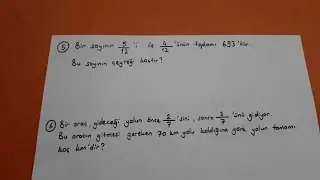 ⑤ Bir sayının 5/12 'i ile 4/12 'ünün toplamı 693'tür.
Bu sayının çeyreği kaçtır?
⑥ Bir araç, gideceği yolun önce 2/7 'sini, sonra 3/7 'ünü gidiyor.
Bu aracın gitmesi gereken 70 km yolu kaldığına göre yolun tamamı
kaç km'dir?